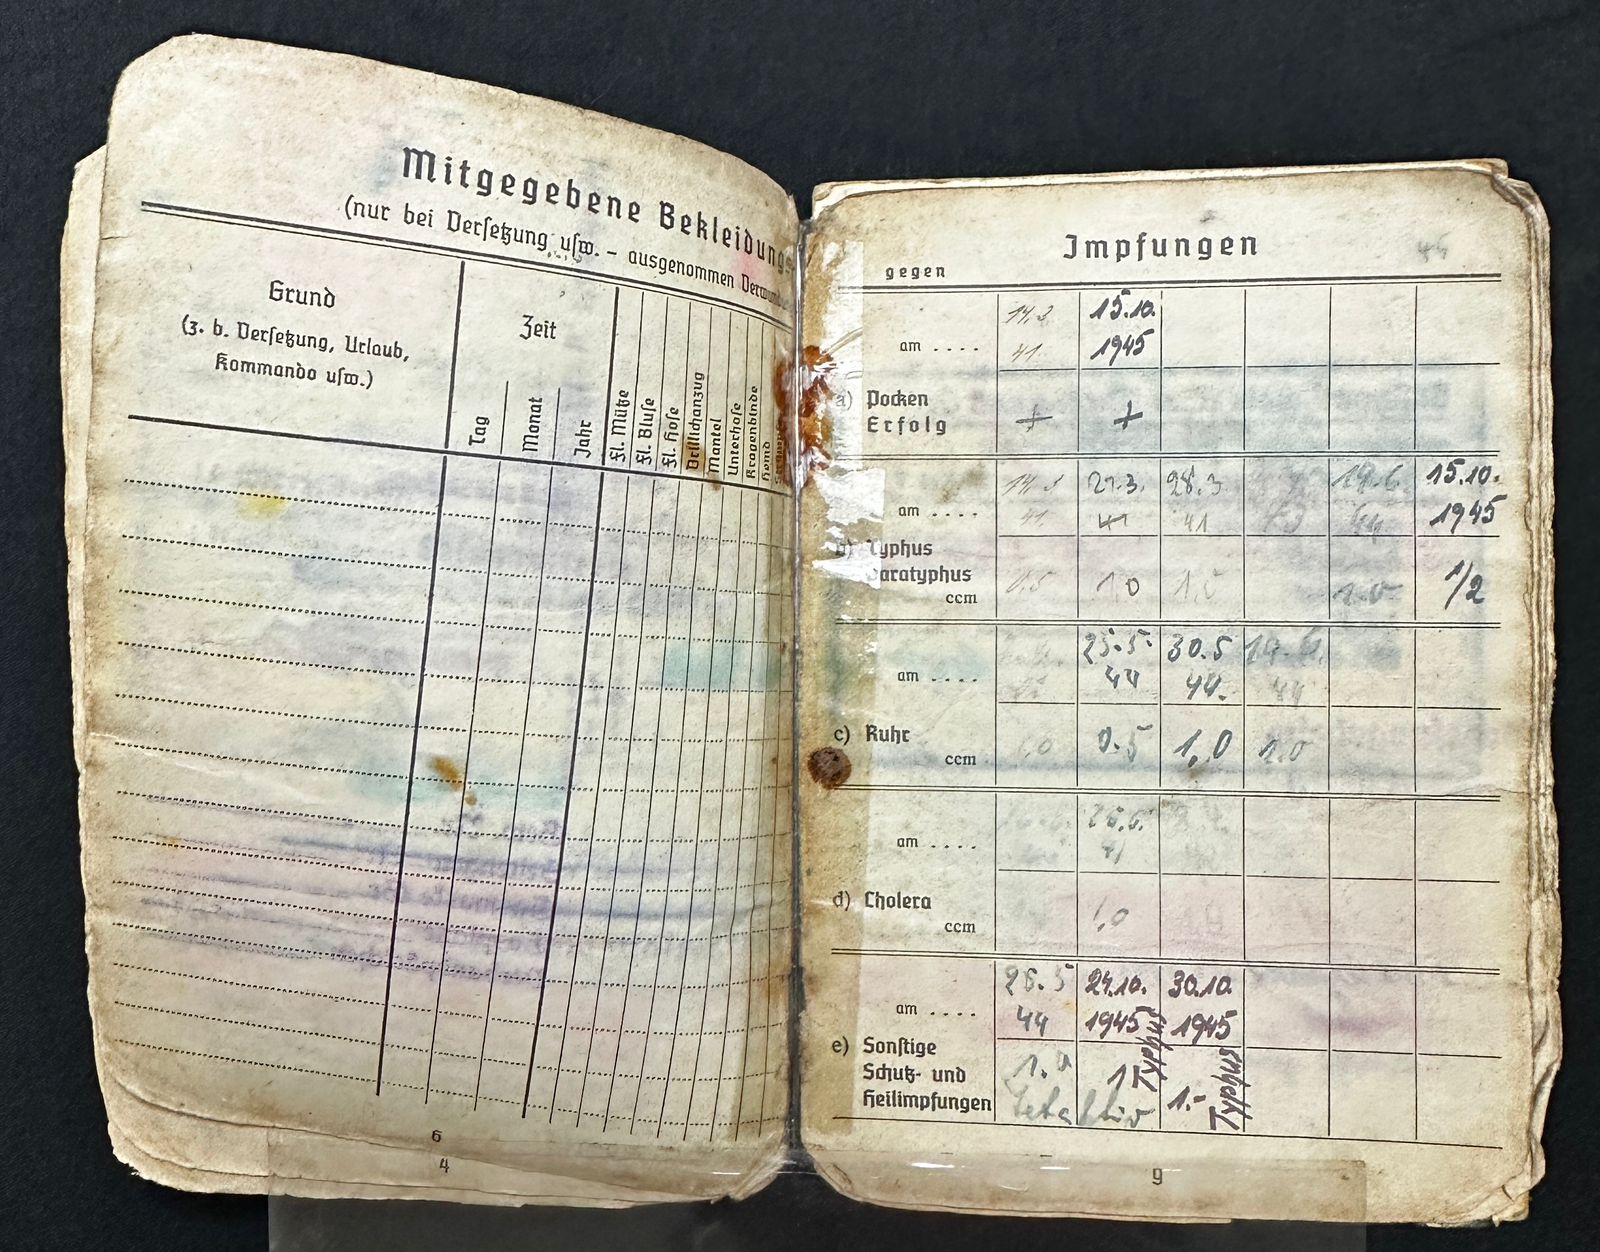 Mitgegebene Bekleidungs
(nur bei Versetzung usw. – ausgenommen Verwund
Grund
(z. b. Versetzung, Urlaub,
Kommando usw.)
Zeit
Tag
Monat
Jahr
Fl. Mütze
Fl. Bluse
Fl. Hose
Drillichanzug
Mantel
Unterhose
Kragenbinde
Hemd
6
4
Impfungen
gegen
am . . . . 41. 15.10. 1945
a) Pocken
Erfolg + +
am . . . . 41 27.3. 41 28.3 41 44 15.10. 1945
b) Typhus
Paratyphus
ccm 0,5 1.0 1.0 1.0 1/2
am . . . . 25.5. 44 30.5 44. 19.6. 44
c) Ruhr
ccm 1,0 0.5 1,0 1.0
am . . . . 26.6.
d) Cholera
ccm 1,0
am . . . . 26.5 44 24.10. 1945 30.10. 1945
e) Sonstige
Schutz- und
Heilimpfungen
1 Typhus
1.- Typhus
9